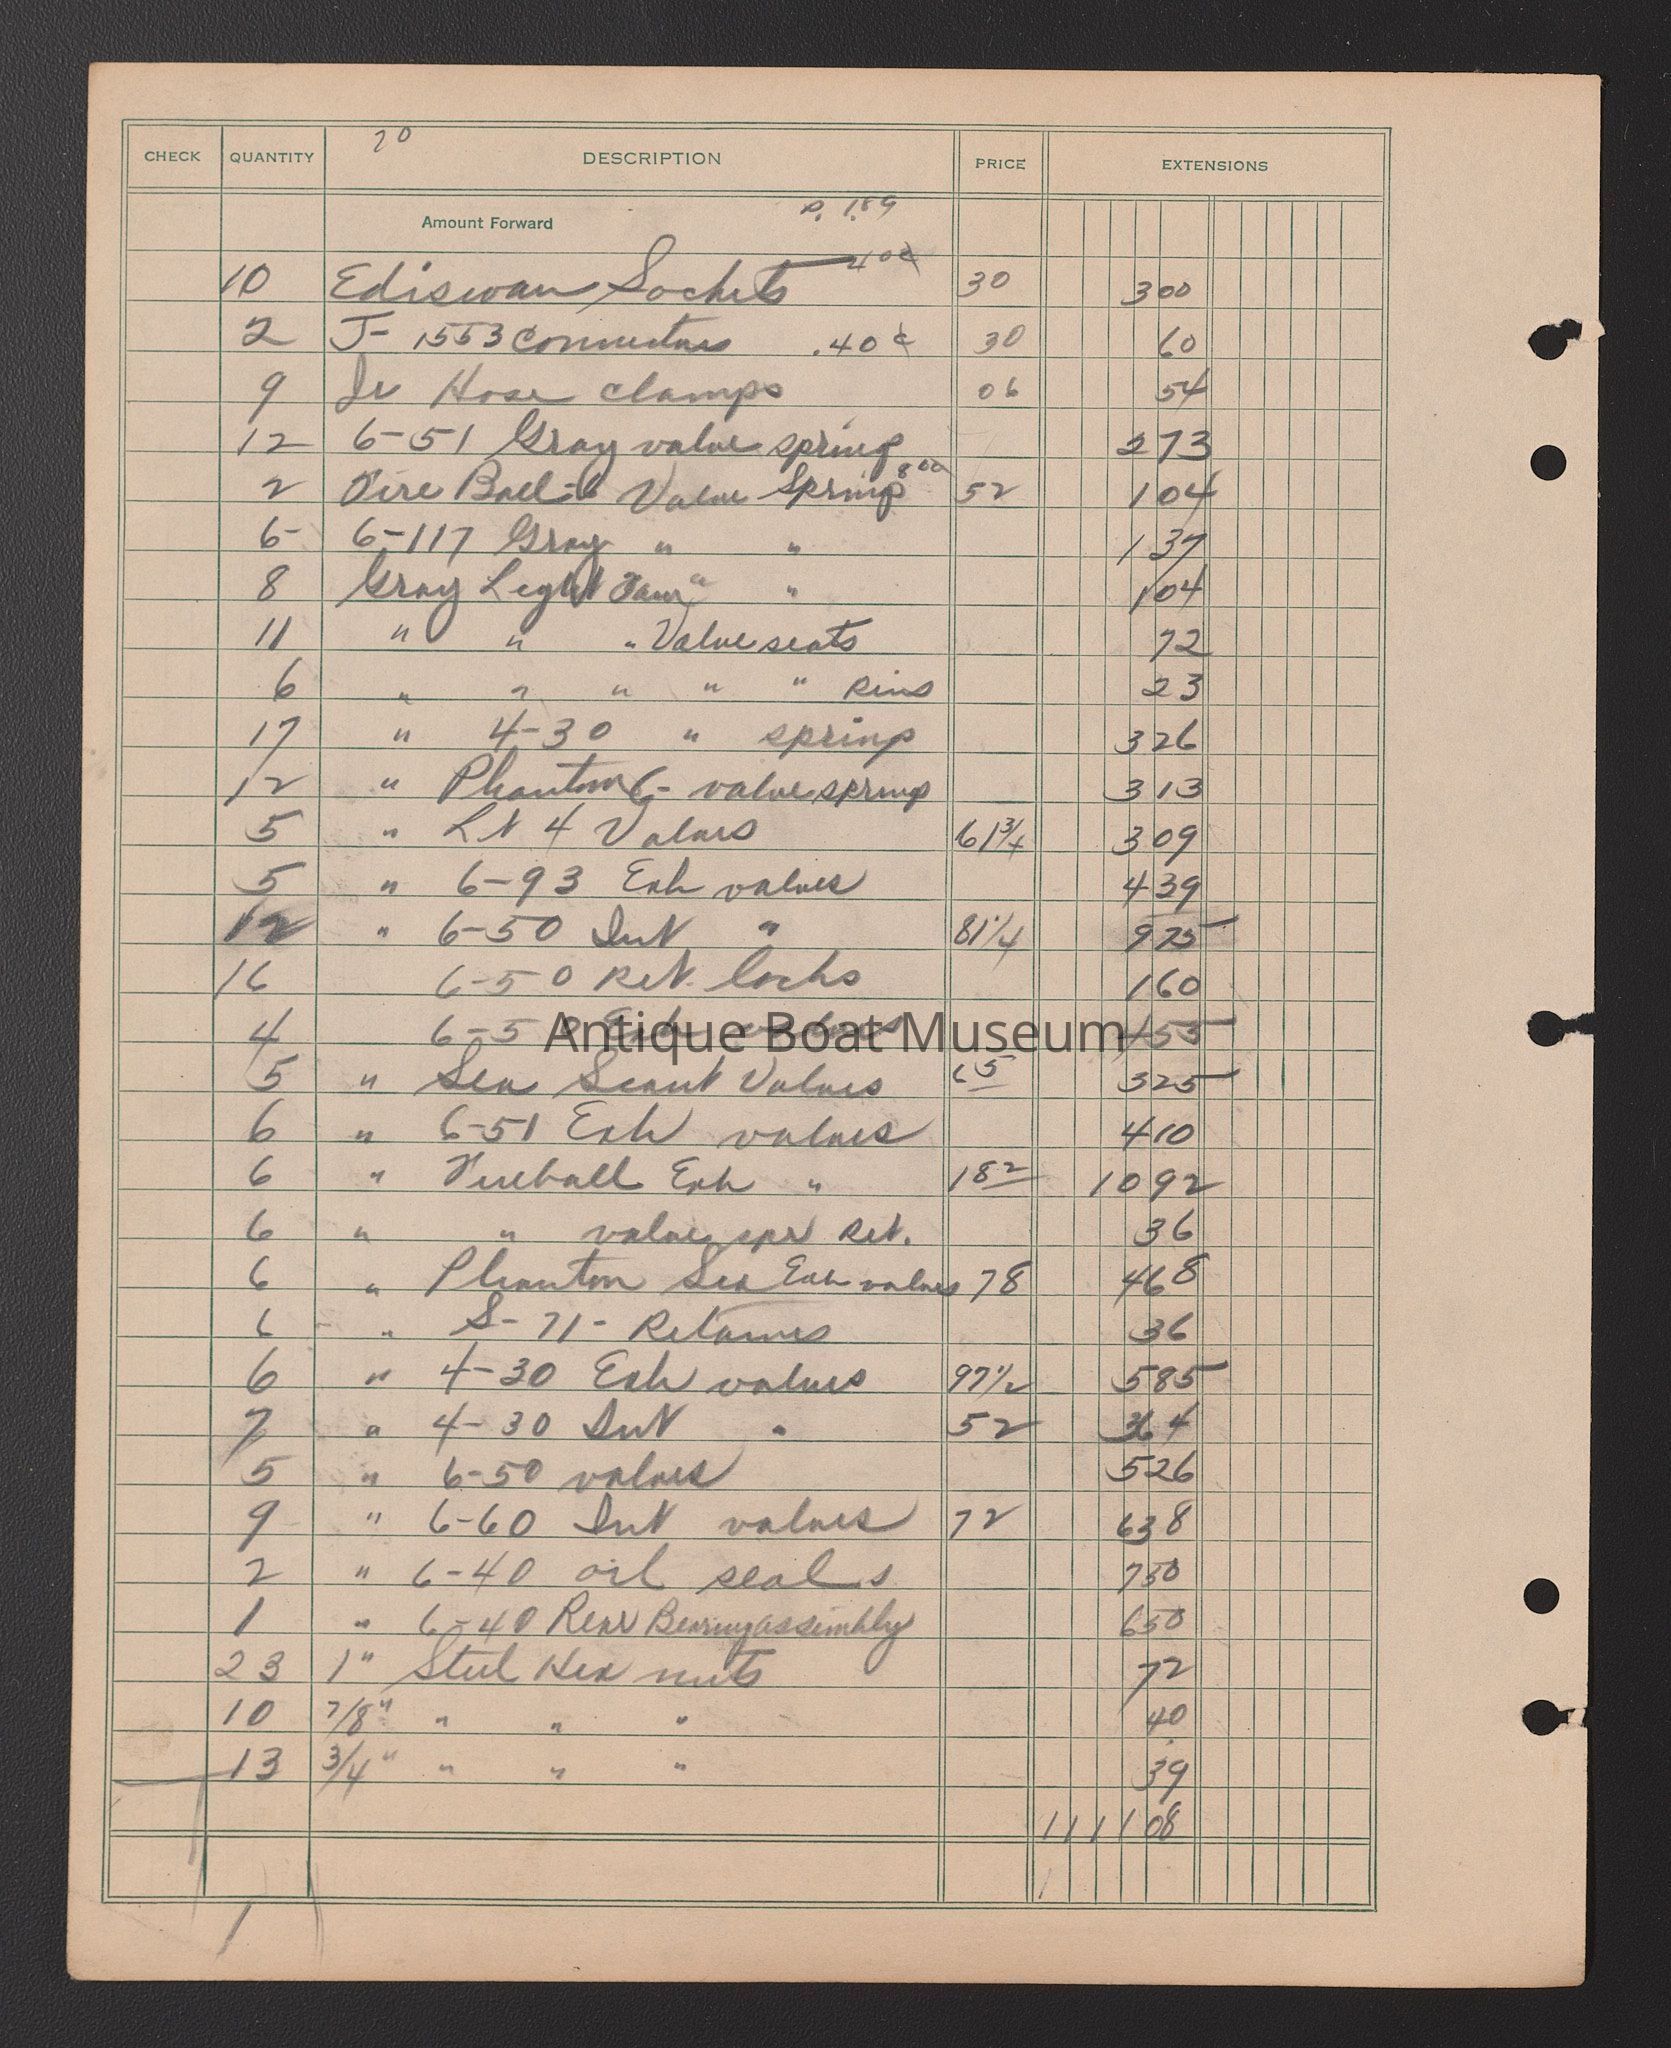 70
CHECK QUANTITY DESCRIPTION PRICE EXTENSIONS
Amount Forward P. 1.89
10 Ediswan Sockets 40¢ 30 300
2 J- 1553 Connectors .40¢ 30 60
9 Hose clamps 06 54
12 6-51 Gray valve spring 273
2 Fire Ball-6 Valve Spring 52 104
6- 6-117 Gray " " 137
8 Gray Light Four " " 104
11 " " " Valve seats 72
6 " " " " " Pins 23
17 " 4-30 " spring 326
12 " Phantom 6- valve spring 313
5 " Lt 4 Valves 61 3/4 309
5 " 6-93 Exh valves 439
12 " 6-50 Int " 81 1/4 975
16 6-50 Ret. locks 160
4 6-50 Exh valves 455
Antique Boat Museum
5 " Sea Scout Valves 65 325
6 " 6-51 Exh valves 410
6 " Fireball Exh " 182 1092
6 " " valve spr Ret. 36
6 " Phantom Sea Exh valves 78 468
6 " S-71- Retainers 36
6 " 4-30 Exh valves 97 1/2 585
7 " 4-30 Int " 52 364
5 " 6-50 valves 526
9 " 6-60 Int valves 72 638
2 " 6-40 oil seals 750
1 " 6-40 Rear Bearing assembly 650
23 1" Steel Hex nuts 72
10 7/8" " " " 40
13 3/4" " " " 39
111108